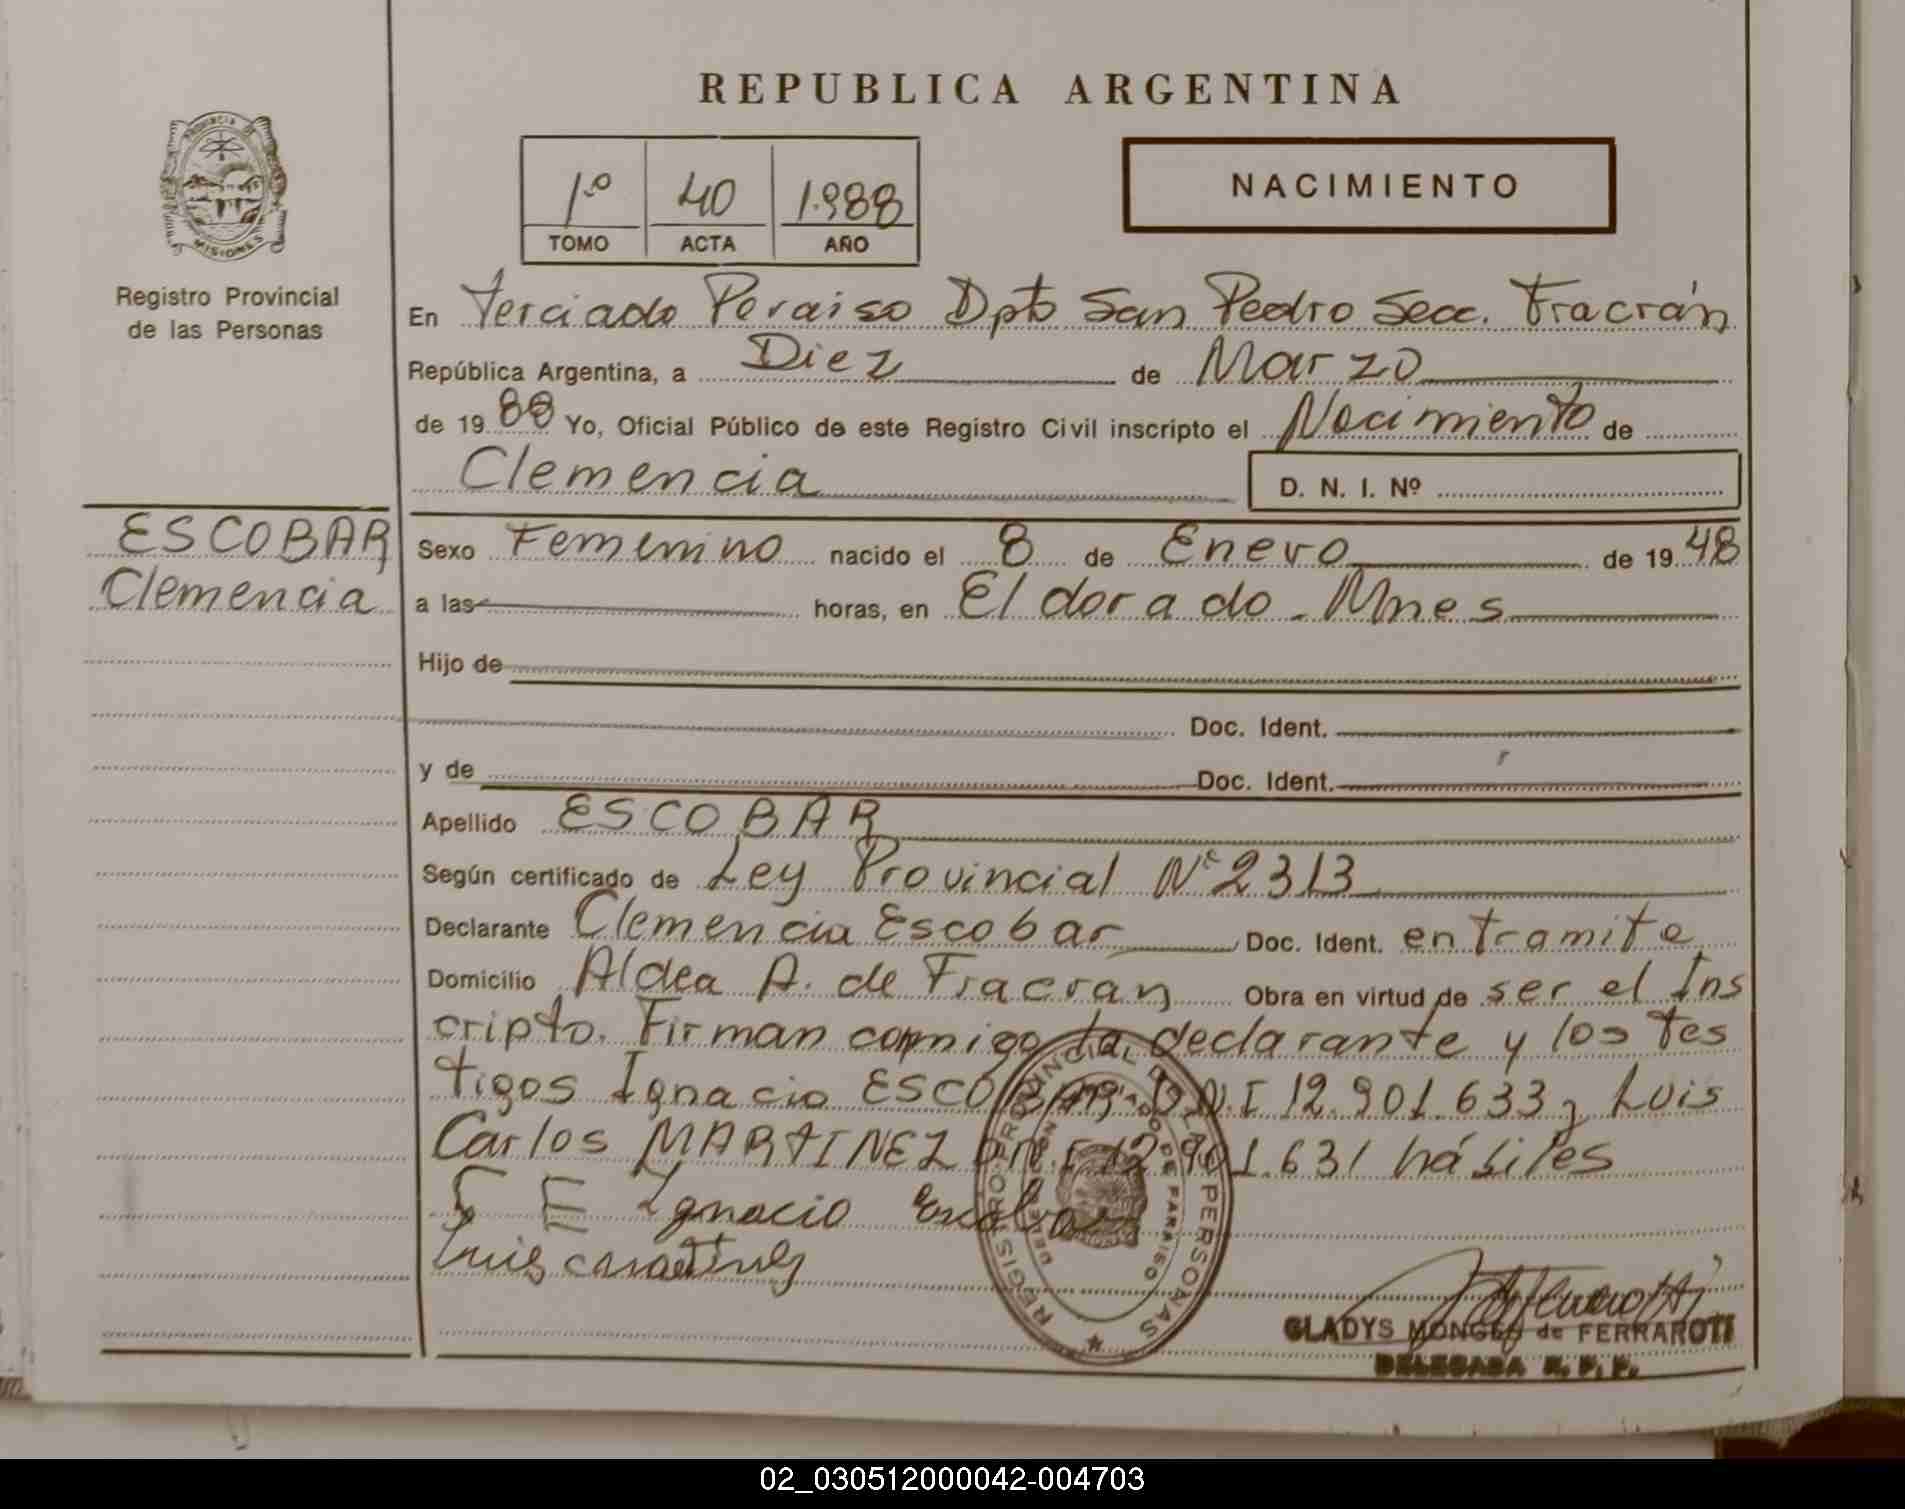 REPUBLICA ARGENTINA
PROVINCIA DE
MISIONES
Registro Provincial
de las Personas
1º 40 1.988
TOMO ACTA AÑO
NACIMIENTO
En Terciado Paraiso Dpto San Pedro Secc. Fracrán
República Argentina, a Diez de Marzo
de 1988 Yo, Oficial Público de este Registro Civil inscripto el Nacimiento de
Clemencia D. N. I. Nº
ESCOBAR
Clemencia
Sexo Femenino nacido el 8 de Enero de 1948
a las horas, en El dorado - Mnes
Hijo de
Doc. Ident.
y de Doc. Ident.
Apellido ESCOBAR
Según certificado de Ley Provincial Nº 2313
Declarante Clemencia Escobar Doc. Ident. en tramite
Domicilio Aldea A. de Fracran Obra en virtud de ser el Ins
cripto. Firman conmigo la declarante y los tes
tigos Ignacio ESCOBAR D.N.I 12.901.633 y Luis
Carlos MARTINEZ D.N.I 12.901.631 hábiles
E Ignacio Escobar
Luis
REGISTRO PROVINCIAL DE LAS PERSONAS
GLADYS MONGES de FERRAROTI
DELEGADA R. P. P.
02_030512000042-004703